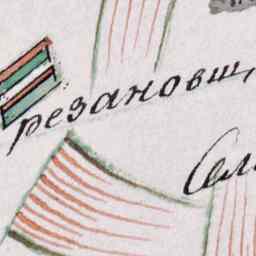 резановщ
Сел